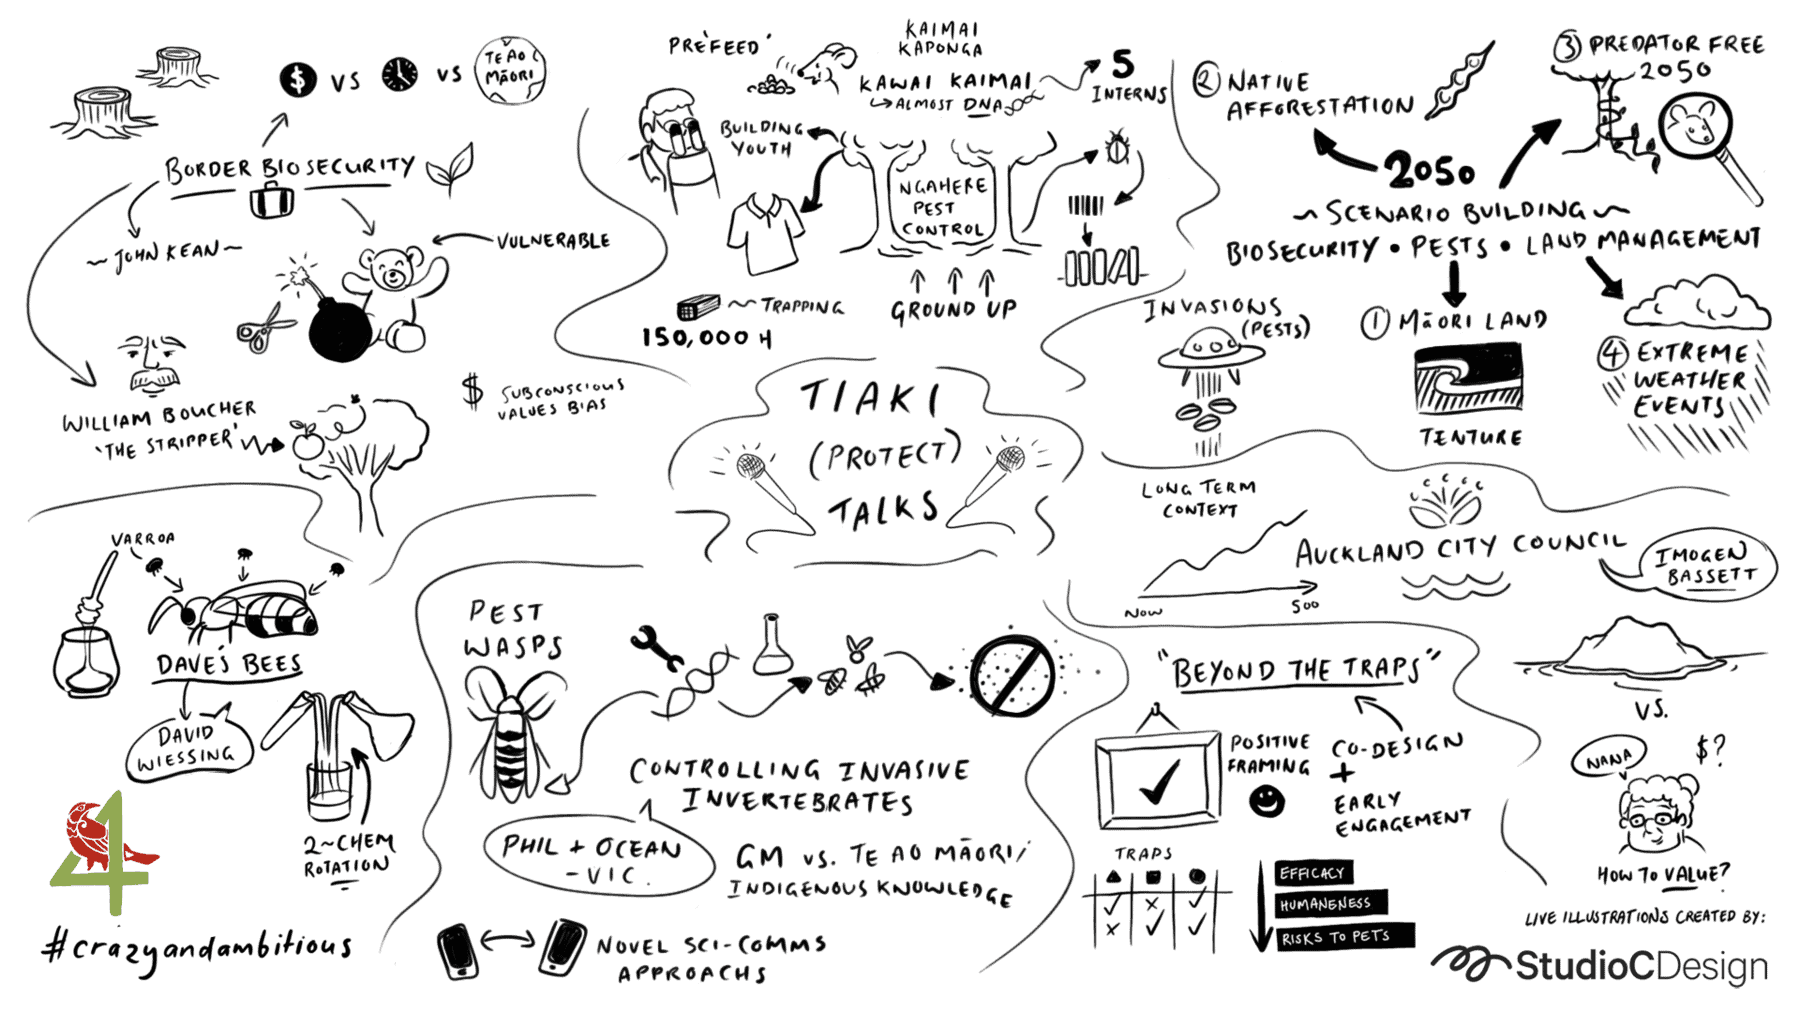 $ VS VS TE AO
MĀORI
BORDER BIOSECURITY
~ JOHN KEAN ~
VULNERABLE
WILLIAM BOUCHER
'THE STRIPPER'
$ SUBCONSCIOUS
VALUES BIAS
'PREFEED'
KAIMAI
KAPONGA
KAWAI KAIMAI
ALMOST DNA
5
INTERNS
BUILDING
YOUTH
NGAHERE
PEST
CONTROL
TRAPPING
150,000 H
GROUND UP
2 NATIVE
AFFORESTATION
3 PREDATOR FREE
2050
2050
~ SCENARIO BUILDING ~
BIOSECURITY • PESTS • LAND MANAGEMENT
1 MĀORI LAND
TENTURE
4 EXTREME
WEATHER
EVENTS
INVASIONS
(PESTS)
TIAKI
(PROTECT)
TALKS
LONG TERM
CONTEXT
NOW
500
AUCKLAND CITY COUNCIL
IMOGEN
BASSETT
VS.
NANA
$?
HOW TO VALUE?
VARROA
DAVE'S BEES
DAVID
WIESSING
2~CHEM
ROTATION
4
#crazyandambitious
PEST
WASPS
CONTROLLING INVASIVE
INVERTEBRATES
PHIL + OCEAN
- VIC.
GM VS. TE AO MĀORI/
INDIGENOUS KNOWLEDGE
NOVEL SCI-COMMS
APPROACHS
"BEYOND THE TRAPS"
POSITIVE
FRAMING
CO-DESIGN
+
EARLY
ENGAGEMENT
TRAPS
EFFICACY
HUMANENESS
RISKS TO PETS
LIVE ILLUSTRATIONS CREATED BY:
StudioCDesign